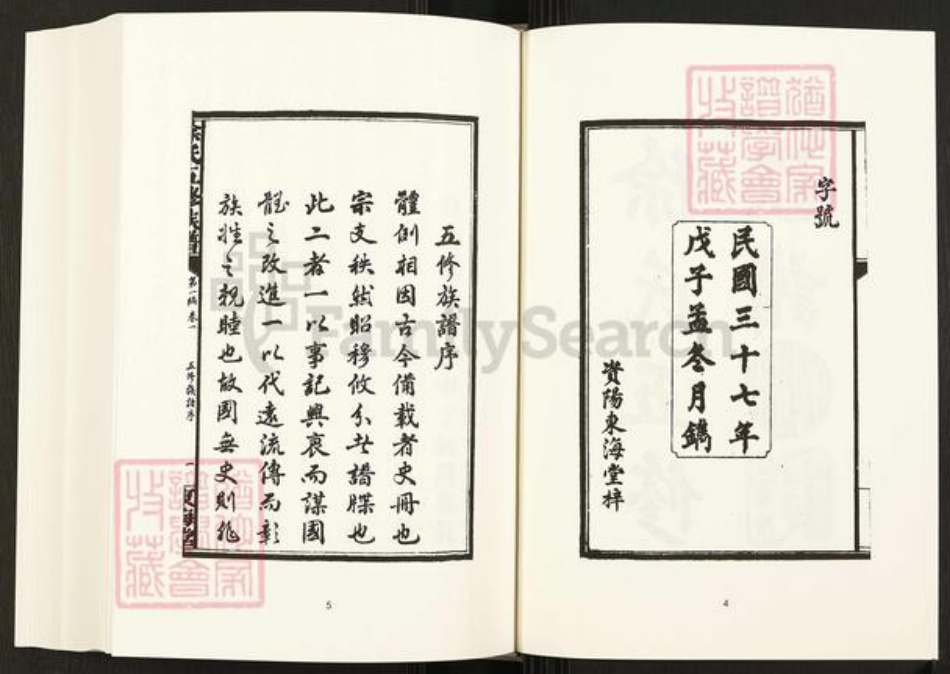 字號
民國三十七年
戊子孟冬月鐫
資陽東海堂梓
4
五修族譜序
體例相因古今備載者史冊也
宗支秩然昭穆攸分者譜牒也
此二者一以事記興衰而謀國
體之改進一以代遠流傳而彰
族姓之親睦也故國無史則非
徐氏五修族譜
第一編卷一
五修族譜序
一
東海堂
5
FamilySearch
猶他家
譜學會
收藏
猶他家
譜學會
收藏